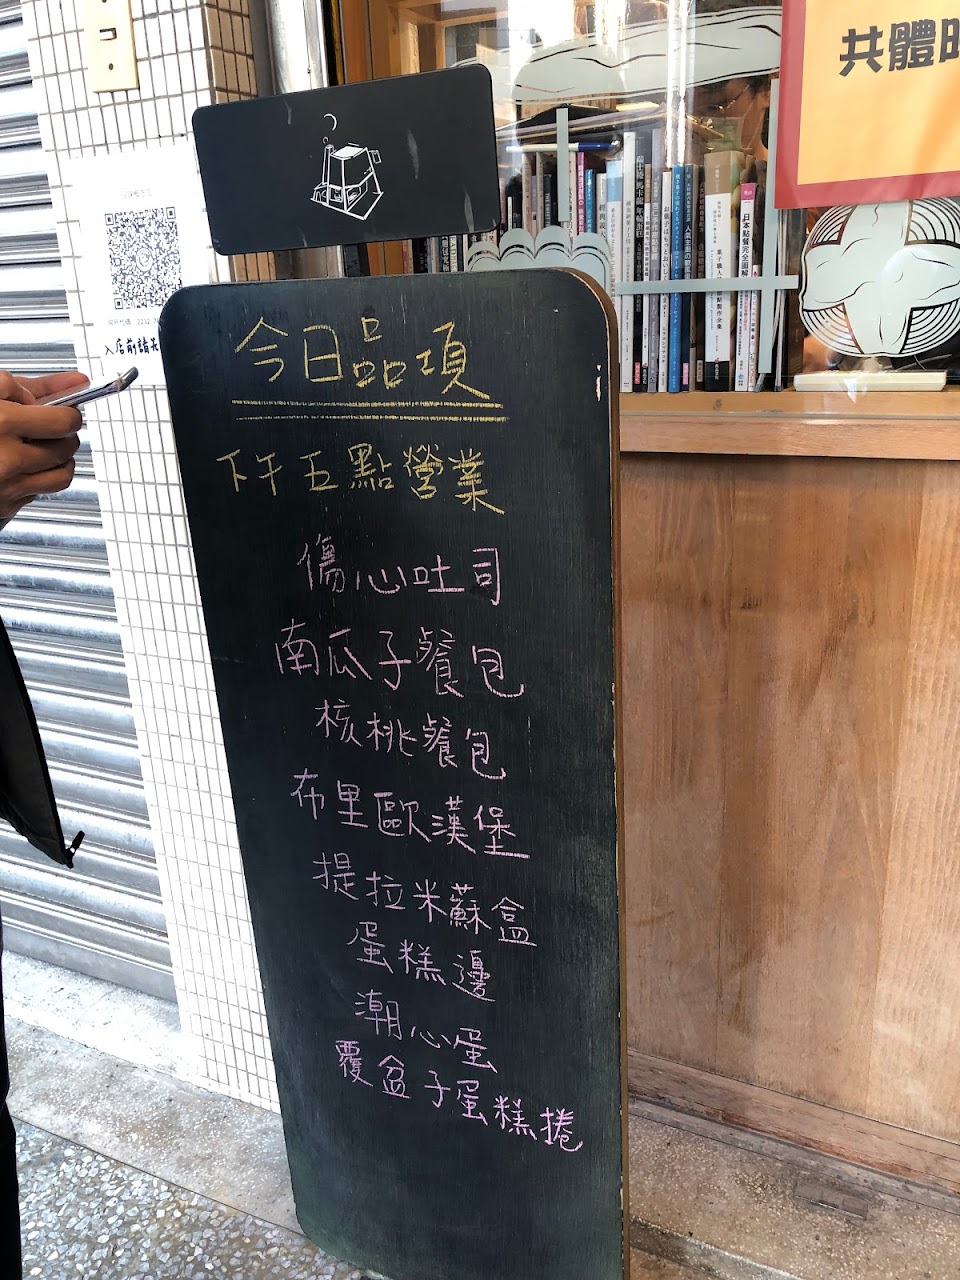 共體時
入店前請先
日本點餐完全圖解
今日品項
下午五點營業
傷心吐司
南瓜子餐包
核桃餐包
布里歐漢堡
提拉米蘇盒
蛋糕邊
潮心蛋
覆盆子蛋糕捲